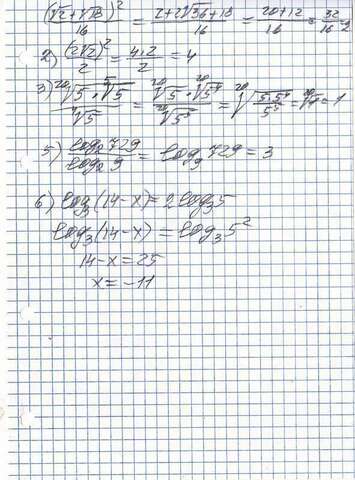 (√2+√18)²/16 = (2+2√36+18)/16 = (20+12)/16 = 32/16 = 2
2) (2√2)²/2 = 4·2/2 = 4
3) ²⁰√5 · ⁵√5 / ⁴√5 = ²⁰√5 · ²⁰√5⁴ / ²⁰√5⁵ = ²⁰√(5·5⁴/5⁵) = ²⁰√1 = 1
5) log₂729/log₂9 = log₉729 = 3
6) log₃(14-x) = 2log₃5
log₃(14-x) = log₃5²
14-x = 25
x = -11